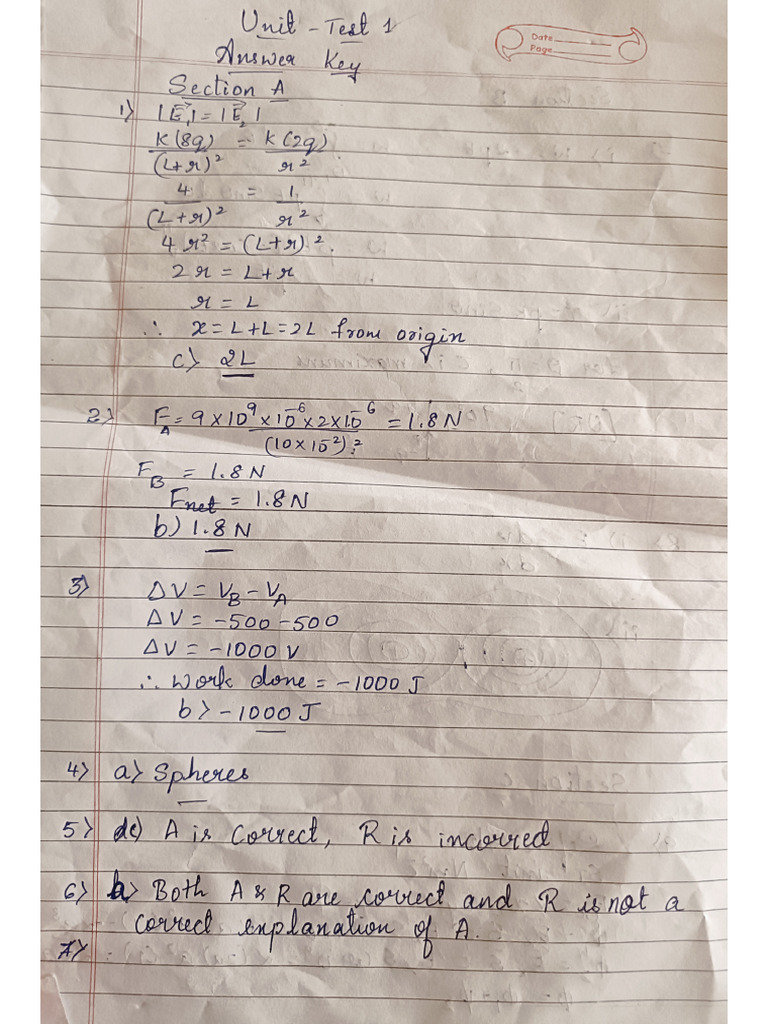 Unit - Test 1
Date
Page
Answer Key
Section A
1) |E⃗₁| = |E⃗₂|
K(8q) = K(2q)
(L+r)² r²
4 = 1
(L+r)² r²
4r² = (L+r)².
2r = L+r
r = L
∴ x = L+L = 2L from origin
c) 2L
2) F_A = 9×10⁹×10⁻⁶×2×10⁻⁶ = 1.8N
(10×10⁻²)²
F_B = 1.8N
Fnet = 1.8N
b) 1.8N
3) ΔV = V_B - V_A
ΔV = -500 -500
ΔV = -1000 V
∴ work done = -1000 J
b) -1000 J
4) a) Spheres
5) c) A is correct, R is incorrect
6) b) Both A & R are correct and R is not a
correct explanation of A.
7)